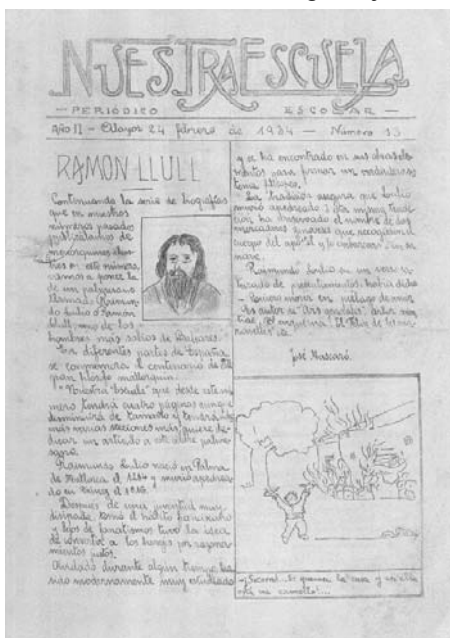 NUESTRA ESCUELA
— PERIÓDICO ESCOLAR —
Año II — Alayor 24 febrero de 1934 — Número 13
RAMON LLULL
Continuando la serie de biografías
que en nuestros
números pasados
publicábamos de
menorquines ilus-
tres en este número
vamos a poner la
de un palmesano
llamado Raimun-
do Lulio o Ramón
Llull, uno de los
hombres más sabios de Baleares.
En diferentes partes de España
se conmemora el centenario de
gran filósofo mallorquín.
"Nuestra Escuela" que desde este nú-
mero tendrá cuatro páginas aunque
disminuirá de tamaño y tendrá
más varias secciones más, quiere de-
dicar un artículo a este
Raimundo Lulio nació en Palma
de Mallorca el y murió apedrea-
do en el
Después de una juventud muy
disipada, tomó el hábito franciscano
y lejos de fanatismos tuvo la idea
de convertir a los herejes por razona-
mientos justos.
Olvidado durante algún tiempo, ha
sido modernamente muy estudiado
y se ha encontrado en sus obras ele-
mentos para formar un verdadero
La tradición asegura que Lulio
murió apedreado y
ción ha conservado el nombre de dos
mercaderes que recogieron el
cuerpo del
Raimundo Lulio en un verso
de presentimientos, había dicho
— Quiero morir en piélago de amor.
Es autor de
José Mascaró.
—¡Socorro!... Se quema la casa y en ella
está mi